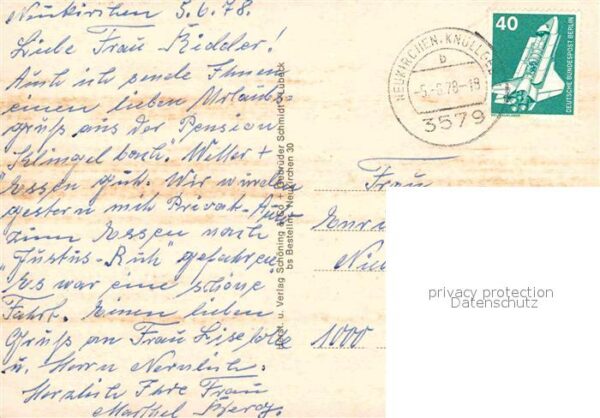 Neukirchen 5.6.78.
Liebe Frau Kidder!
Auch ich sende Ihnen
einen lieben Urlaubs
gruß aus der Pension
"Klingelbach". Wetter +
Essen gut. Wir wurden
gestern mit Privat-Auto
zum Essen nach
"Justus-Ruh" gefahren
Es war eine schöne
Fahrt. Einen lieben
Gruß an Frau Liselotte
u. Herrn
Herzlich Ihre Frau
Herst. u. Verlag Schöning & Co + Gebrüder Schmidt, Lübeck
bs Bestellnr. Neukirchen 30
NEUKIRCHEN, KNÜLLGE
b
-5.-6.78-18
3579
40
DEUTSCHE BUNDESPOST BERLIN
Frau
1000
privacy protection
Datenschutz